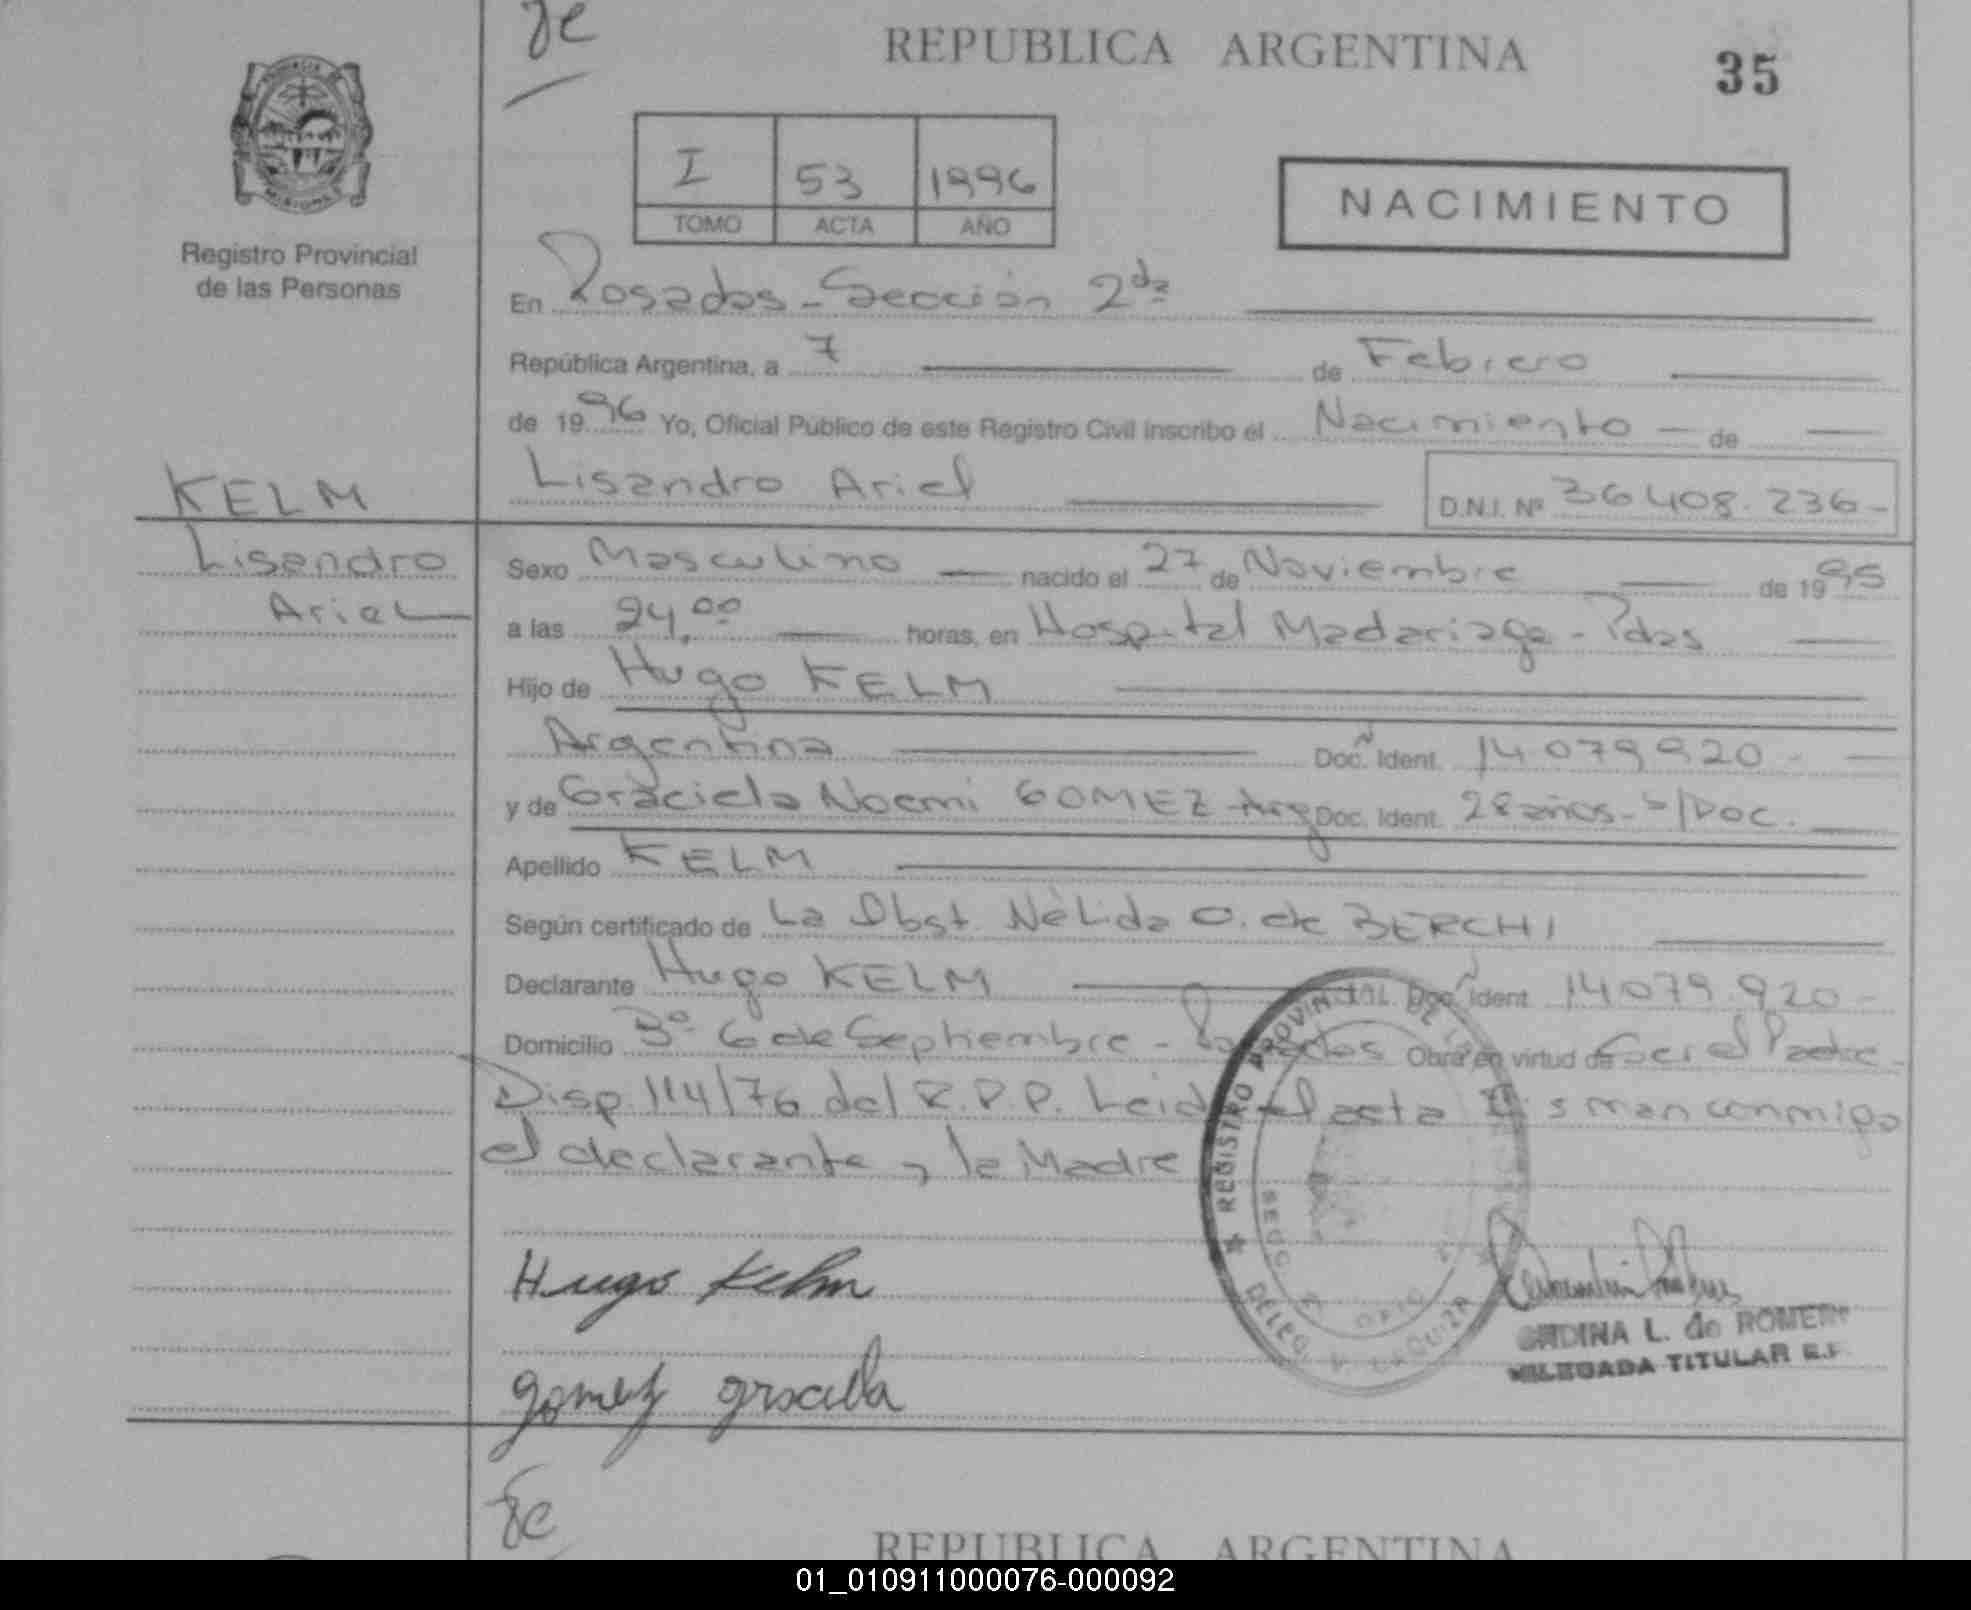 REPUBLICA ARGENTINA
35
I 53 1996
TOMO ACTA AÑO
NACIMIENTO
Registro Provincial
de las Personas
En Posadas - Sección 2da
República Argentina, a 7 de Febrero
de 1996 Yo, Oficial Público de este Registro Civil inscribo el Nacimiento de
KELM
Lisandro Ariel D.N.I. Nº 36408.236-
Lisandro
Ariel
Sexo Masculino nacido el 27 de Noviembre de 1995
a las 24,00 horas, en Hospital Madariaga - Pdas
Hijo de Hugo KELM
Argentina Doc. Ident. 14079920-
y de Graciela Noemi GOMEZ Arg Doc. Ident. 28 años - S/Doc.
Apellido KELM
Según certificado de La Obst. Nélida O. de BERCHI
Declarante Hugo KELM Doc. Ident 14079.920-
Domicilio Bº 6 de Septiembre - Posadas Obra en virtud de Ser el Padre-
Disp. 114/76 del R.P.P. Leida el acta conmigo
el declarante y la Madre
REGISTRO PROVINCIAL DE
DELEG
Hugo Kelm
L. de ROMERO
DELEGADA TITULAR R.P.
Gomez graciela
REPUBLICA ARGENTINA
01_010911000076-000092